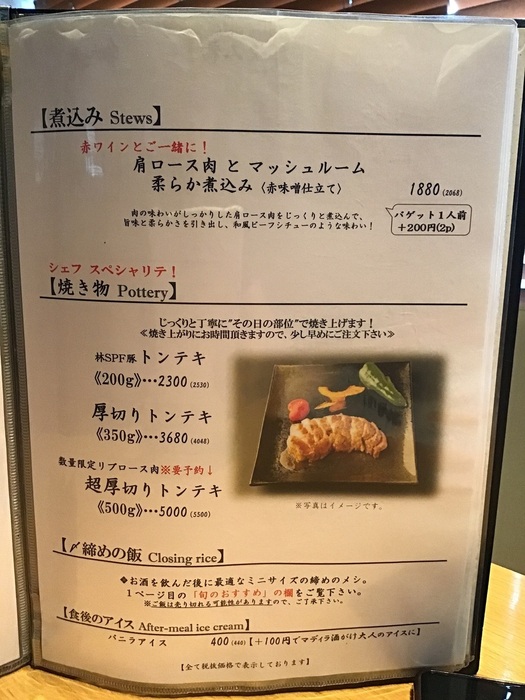 【煮込み Stews】
赤ワインとご一緒に！
肩ロース肉 と マッシュルーム
柔らか煮込み〈赤味噌仕立て〉
1880(2068)
肉の味わいがしっかりした肩ロース肉をじっくりと煮込んで、
旨味と柔らかさを引き出し、和風ビーフシチューのような味わい！
バゲット1人前
＋200円(2p)
シェフ スペシャリテ！
【焼き物 Pottery】
じっくりと丁寧に"その日の部位"で焼き上げます！
≪焼き上がりにお時間頂きますので、少し早めにご注文下さい≫
林SPF豚トンテキ
《200g》…2300(2530)
厚切りトンテキ
《350g》…3680(4048)
数量限定リブロース肉※要予約↓
超厚切りトンテキ
《500g》…5000(5500)
※写真はイメージです。
【〆締めの飯 Closing rice】
◆お酒を飲んだ後に最適なミニサイズの締めのメシ。
1ページ目の「旬のおすすめ」の欄をご覧下さい。
※ご飯は売り切れる可能性がありますので、ご了承下さい。
【食後のアイス After-meal ice cream】
バニラアイス 400(440)【＋100円でマディラ酒がけ大人のアイスに】
【全て税抜価格で表示しております】